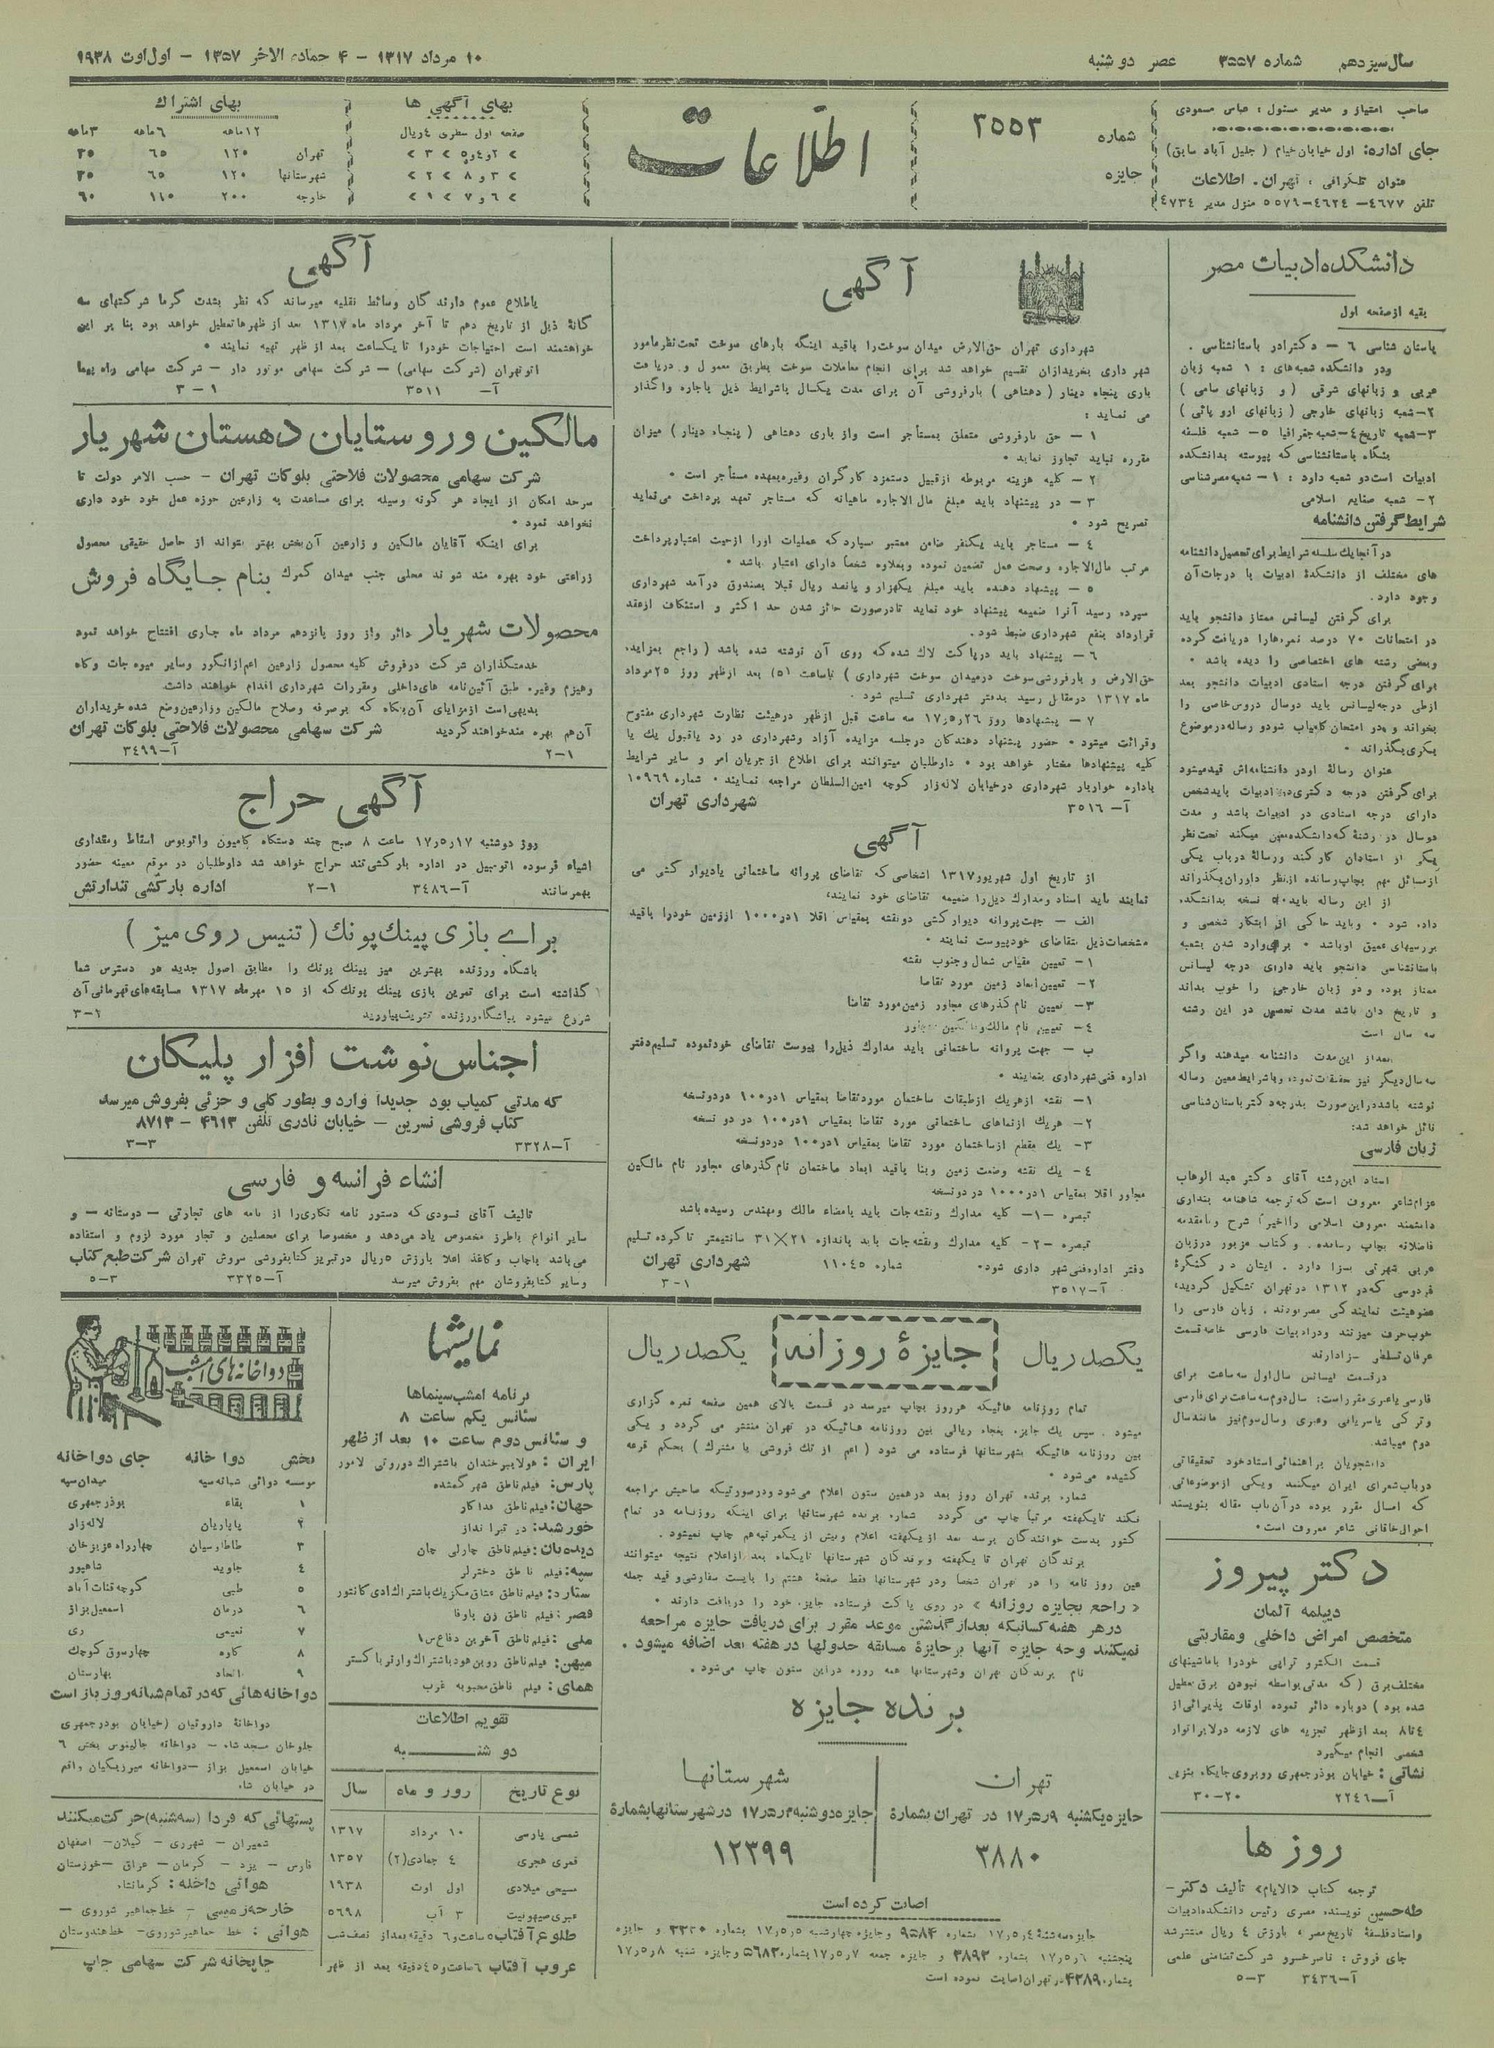 سال سیزدهم شماره ۳۵۵۷ عصر دوشنبه
۱۰ مرداد ۱۳۱۷ - ۴ جمادی الاخر ۱۳۵۷ - اول اوت ۱۹۳۸
صاحب امتیاز و مدیر مسئول : عباس مسعودی
جای اداره: اول خیابان خیام ( جلیل آباد سابق )
عنوان تلگرافی : تهران. اطلاعات
تلفن ۴۶۷۷ - ۴۶۲۴ - ۵۵۷۹ منزل مدیر ۴۷۳۴
شماره ۳۵۵۳
جایزه
اطلاعات
بهای آگهی ها
صفحه اول سطری ۴ ریال
> ۲و۴و۵ > ۳ >
> ۳ و ۸ > ۲ >
> ۶ و ۷ > ۱ >
بهای اشتراک
۱۲ماهه ۶ماهه ۳ماهه
تهران ۱۲۰ ۶۵ ۳۵
شهرستانها ۱۲۰ ۶۵ ۳۵
خارجه ۲۰۰ ۱۱۰ ۶۰
دانشکده ادبیات مصر
بقیه از صفحه اول
باستان شناسی ۶ - دکتر ادر باستانشناسی .
ودر دانشکده شعبه های : ۱ شعبه زبان
عربی و زبانهای شرقی ( و زبانهای سامی )
۲- شعبه زبانهای خارجی ( زبانهای اروپائی )
۳- شعبه تاریخ ۴- شعبه جغرافیا ۵- شعبه فلسفه
بنگاه باستانشناسی که پیوسته بدانشکده
ادبیات است دو شعبه دارد : ۱- شعبه مصر شناسی
۲- شعبه صنایع اسلامی
شرایط گرفتن دانشنامه
در آنجا یک سلسله شرایط برای تحصیل دانشنامه
های مختلف از دانشکدۀ ادبیات با درجات آن
وجود دارد.
برای گرفتن لیسانس ممتاز دانشجو باید
در امتحانات ۷۰ درصد نمره ها را دریافت کرده
وبعضی رشته های اختصاصی را دیده باشد •
برای گرفتن درجه استادی ادبیات دانشجو بعد
از طی درجه لیسانس باید دو سال دروس خاصی را
بخواند و در امتحان کامیاب شود و رساله در موضوع
بکری بگذراند •
عنوان رسالۀ او در دانشنامه اش قید میشود
برای گرفتن درجه دکتری در ادبیات باید شخص
دارای درجه استادی در ادبیات باشد و مدت
دو سال در رشتۀ که دانشکده معین میکند تحت نظر
یکی از استادان کار کند ورسالۀ در باب یکی
از مسائل مهم بچاپ رسانده از نظر داوران بگذراند
از این رساله باید ۵۰ نسخه بدانشکده
داده شود • وباید حاکی از ابتکار شخصی و
بررسیهای عمیق او باشد • برای وارد شدن بشعبه
باستانشناسی دانشجو باید دارای درجه لیسانس
ممتاز بوده و دو زبان خارجی را خوب بداند
و تاریخ دان باشد مدت تحصیل در این رشته
سه سال است
بعد از این مدت دانشنامه میدهند واگر
سه سال دیگر نیز تحقیقات نموده وبا شرایط معین رساله
نوشته باشد در این صورت بدرجه دکتر باستان شناسی
نائل خواهد شد:
زبان فارسی
استاد این رشته آقای دکتر عبد الوهاب
عزام شاعر معروف است که ترجمه شاهنامه بنداری
دانشمند معروف اسلامی را اخیراً شرح و با مقدمه
فاضلانه بچاپ رسانده. وکتاب مزبور در زبان
عربی شهرتی بسزا دارد . ایشان در کنگرۀ
فردوسی که در ۱۳۱۲ در تهران تشکیل گردید،
عضو هیئت نمایندگی مصر بودند. زبان فارسی را
خوب حرف میزنند ودر ادبیات فارسی خاصه قسمت
عرفان تسلط بسزا دارند
در قسمت لیسانس سال اول سه ساعت برای
فارسی یا عبری مقرر است: سال دوم سه ساعت برای فارسی
وترکی یا سریانی وعبری وسال سوم نیز مانند سال
دوم میباشد.
دانشجویان براهنمائی استاد خود تحقیقاتی
در باب شعرای ایران میکنند ویکی از موضوعاتی
که امسال مقرر بوده در آن باب مقاله بنویسند
احوال خاقانی شاعر معروف است •
دکتر پیروز
دیپلمه آلمان
متخصص امراض داخلی ومقاربتی
قسمت الکترو تراپی خود را با ماشینهای
مختلف برق ( که مدتی بواسطه نبودن برق معطل
شده بود ) دوباره دائر نموده اوقات پذیرائی از
۴ تا ۸ بعد از ظهر تجزیه های لازمه در لابراتوار
شخصی انجام میگیرد
نشانی : خیابان بوذر جمهری روبروی جایگاه بنزین
آ-۲۲۴۶ ۲۰-۳۰
روز ها
ترجمه کتاب «الایام» تألیف دکتر -
طه حسین نویسنده مصری رئیس دانشکده ادبیات
واستاد فلسفۀ تاریخ مصر» بارزش ۴ ریال منتشر شد
جای فروش : ناصر خسرو شرکت تضامنی علمی
آ-۳۴۳۶ ۳-۵
آگهی
شهرداری تهران حق الارض میدان سوخت را باقید اینکه بارهای سوخت تحت نظر مامور
شهر داری بخریداران تقسیم خواهد شد برای انجام معاملات سوخت بطریق معمول و دریافت
باری پنجاه دینار ( دهشاهی ) بار فروشی آن برای مدت یکسال باشرایط ذیل باجاره واگذار
می نماید :
۱ - حق بار فروشی متعلق بمستأجر است واز باری دهشاهی ( پنجاه دینار ) میزان
مقرره نباید تجاوز نماید •
۲ - کلیه هزینه مربوطه از قبیل دستمزد کارگران وغیره بعهده مستأجر است •
۳ - در پیشنهاد باید مبلغ مال الاجاره ماهیانه که مستاجر تعهد پرداخت می نماید
تصریح شود •
۴ - مستاجر باید یکنفر ضامن معتبر بسپارد که عملیات او را از حیث اعتبار پرداخت
مرتب مال الاجاره وصحت عمل تضمین نموده وبعلاوه شخصاً دارای اعتبار باشد •
۵ - پیشنهاد دهنده باید مبلغ یکهزار و پانصد ریال قبلا بصندوق درآمد شهرداری
سپرده رسید آنرا ضمیمه پیشنهاد خود نماید تا در صورت حائز شدن حد اکثر و استنکاف از عقد
قرارداد بنفع شهرداری ضبط شود.
۶ - پیشنهاد باید در پاکت لاک شده که روی آن نوشته شده باشد ( راجع بمزایده
حق الارض و بار فروشی سوخت در میدان سوخت شهرداری ) تا ساعت (۵) بعد از ظهر روز ۲۵ مرداد
ماه ۱۳۱۷ در مقابل رسید بدفتر شهرداری تسلیم شود .
۷ - پیشنهادها روز ۲۶ر۵ر۱۷ سه ساعت قبل از ظهر در هیئت نظارت شهرداری مفتوح
وقرائت میشود • حضور پیشنهاد دهندگان در جلسه مزایده آزاد وشهرداری در رد یا قبول یک یا
کلیه پیشنهادها مختار خواهد بود • داوطلبان میتوانند برای اطلاع از جریان امر و سایر شرایط
باداره خواربار شهرداری در خیابان لاله زار کوچه امین السلطان مراجعه نمایند • شماره ۱۰۹۶۹
آ-۳۵۱۶ شهرداری تهران
آگهی
از تاریخ اول شهریور ۱۳۱۷ اشخاصی که تقاضای پروانه ساختمانی یا دیوار کشی می
نمایند باید اسناد ومدارک ذیل را ضمیمه تقاضای خود نمایند،
الف - جهت پروانه دیوار کشی دو نقشه بمقیاس اقلا ۱ در ۱۰۰۰ از زمین خود را باقید
مشخصات ذیل بتقاضای خود پیوست نمایند •
۱- تعیین مقیاس شمال وجنوب نقشه
۲- تعیین ابعاد زمین مورد تقاضا
۳- تعیین نام گذرهای مجاور زمین مورد تقاضا
۴- تعیین نام مالک ومالکین مجاور
ب - جهت پروانه ساختمانی باید مدارک ذیل را پیوست تقاضای خود نموده تسلیم دفتر
اداره فنی شهرداری بنمایند •
۱- نقشه از هریک از طبقات ساختمان مورد تقاضا بمقیاس ۱ در ۱۰۰ در دو نسخه
۲- هریک از نماهای ساختمانی مورد تقاضا بمقیاس ۱ در ۱۰۰ در دو نسخه
۳- یک مقطع از ساختمان مورد تقاضا بمقیاس ۱ در ۱۰۰ در دو نسخه
۴- یک نقشه وضعیت زمین وبنا باقید ابعاد ساختمان نام گذرهای مجاور نام مالکین
مجاور اقلا بمقیاس ۱ در ۱۰۰۰ در دو نسخه
تبصره -۱- کلیه مدارک ونقشه جات باید بامضاء مالک ومهندس رسیده باشد
تبصره -۲- کلیه مدارک ونقشه جات باید باندازه ۲۱×۳۱ سانتیمتر تا کرده تسلیم
دفتر اداره فنی شهر داری شود• شماره ۱۱۰۴۵ شهرداری تهران
آ-۳۵۱۷ ۱-۳
آگهی
باطلاع عموم دارندگان وسائط نقلیه میرساند که نظر بشدت گرما شرکتهای سه
گانۀ ذیل از تاریخ دهم تا آخر مرداد ماه ۱۳۱۷ بعد از ظهرها تعطیل خواهد بود بنا بر این
خواهشمند است احتیاجات خود را تا یکساعت بعد از ظهر تهیه نمایند •
اتو تهران (شرکت سهامی) - شرکت سهامی موتور دار - شرکت سهامی راه پیما
آ- ۳۵۱۱ ۱-۳
مالکین وروستایان دهستان شهریار
شرکت سهامی محصولات فلاحتی بلوکات تهران - حسب الامر دولت تا
سرحد امکان از ایجاد هر گونه وسیله برای مساعدت به زارعین حوزه عمل خود خود داری
نخواهد نمود •
برای اینکه آقایان مالکین و زارعین آن بخش بهتر بتوانند از حاصل حقیقی محصول
زراعتی خود بهره مند شوند محلی جنب میدان گمرک بنام جایگاه فروش
محصولات شهریار دائر واز روز پانزدهم مرداد ماه جاری افتتاح خواهد نمود
خدمتگذاران شرکت در فروش کلیه محصول زارعین اعم از انگور وسایر میوه جات وکاه
وهیزم وغیره طبق آئین نامه های داخلی ومقررات شهرداری اقدام خواهند داشت.
بدیهی است از مزایای آن بنگاه که بر صرفه وصلاح مالکین وزارعین وضع شده خریداران
آن هم بهره مند خواهند گردید شرکت سهامی محصولات فلاحتی بلوکات تهران
۱-۲ آ-۳۴۹۹
آگهی حراج
روز دوشنبه ۱۷ر۵ر۱۷ ساعت ۸ صبح چند دستگاه کامیون واتوبوس اسقاط ومقداری
اشیاء فرسوده اتومبیل در اداره بارکشی تند حراج خواهد شد داوطلبان در موقع معینه حضور
بهمرسانند آ-۳۴۸۶ ۱-۲ اداره بارکشی تندارتش
برای بازی پینک پونک ( تنیس روی میز )
باشگاه ورزنده بهترین میز پینک پونک را مطابق اصول جدید در دسترس شما
گذاشته است برای تمرین بازی پینک پونک که از ۱۵ مهر ماه ۱۳۱۷ مسابقه های قهرمانی آن
شروع میشود بباشگاه ورزنده تشریف بیاورید ۲-۳
اجناس نوشت افزار پلیکان
که مدتی کمیاب بود جدیداً وارد و بطور کلی و جزئی بفروش میرسد
کتاب فروشی نسرین - خیابان نادری تلفن ۴۶۱۳ - ۸۷۱۳
آ-۳۳۲۸ ۳-۳
انشاء فرانسه و فارسی
تالیف آقای نسودی که دستور نامه نگاری را از نامه های تجارتی - دوستانه - و
سایر انواع باطرز مخصوص یاد می دهد و مخصوصا برای محصلین و تجار مورد لزوم و استفاده
می باشد باچاپ وکاغذ اعلا بارزش ۵ ریال در تبریز کتابفروشی سروش تهران شرکت طبع کتاب
وسایر کتابفروشان مهم بفروش میرسد آ-۳۳۲۵ ۳-۵
یکصد ریال جایزۀ روزانه یکصد ریال
تمام روزنامه هائیکه هر روز بچاپ میرسد در قسمت بالای همین صفحه نمره گزاری
میشود . سپس یک جایزه پنجاه ریالی بین روزنامه هائیکه در تهران منتشر می گردد و یکی
بین روزنامه هائیکه بشهرستانها فرستاده می شود ( اعم از تک فروشی یا مشترک ) بحکم قرعه
کشیده می شود •
شماره برنده تهران روز بعد در همین ستون اعلام می شود ودر صورتیکه صاحبش مراجعه
نکند تا یکهفته مرتباً چاپ می گردد شماره برنده شهرستانها برای اینکه روزنامه در تمام
کشور بدست خوانندگان برسد بعد از یکهفته اعلام وبیش از یکمرتبه هم چاپ نمیشود .
برندگان تهران تا یکهفته وبرندگان شهرستانها تا یکماه بعد از اعلام نتیجه میتوانند
عین روز نامه را در تهران شخصاً ودر شهرستانها فقط صفحۀ هشتم را باپست سفارشی وقید جمله
« راجع بجایزه روزانه » در روی پاکت فرستاده جایزه خود را دریافت دارند •
در هر هفته کسانیکه بعد از گذشتن موعد مقرر برای دریافت جایزه مراجعه
نمیکنند وجه جایزه آنها بر جایزۀ مسابقه جدولها در هفته بعد اضافه میشود .
نام برندگان تهران وشهرستانها همه روزه در این ستون چاپ می شود .
برنده جایزه
تهران
جایزه یکشنبه ۹ر۵ر۱۷ در تهران بشمارۀ
۳۸۸۰
شهرستانها
جایزه دوشنبه ۳ر۵ر۱۷ در شهرستانها بشمارۀ
۱۲۳۹۹
اصابت کرده است
جایزه سه شنبۀ ۴ر۵ر۱۷ بشماره ۹۵۸۴ وجایزه چهارشنبه ۵ر۵ر۱۷ بشماره ۳۳۳۰ و جایزه
پنجشنبه ۶ر۵ر۱۷ بشماره ۳۸۹۳ و جایزه جمعه ۷ر۵ر۱۷ بشماره ۵۶۸۳ وجایزه شنبه ۸ر۵ر۱۷
بشماره ۴۳۸۹ در تهران اصابت نموده است
نمایشها
برنامه امشب سینماها
سئانس یکم ساعت ۸
و سئانس دوم ساعت ۱۰ بعد از ظهر
ایران : هولابر خندان باشتراک دوروتی لامور
پارس: فیلم ناطق شهر گمشده
جهان: فیلم ناطق فداکار
خورشید: در تیرانداز
دیده بان: فیلم ناطق چارلی چان
سپه: فیلم ناطق دختر لر
ستاره: فیلم ناطق عشاق مکزیک باشتراک ادی کانتور
قصر: فیلم ناطق زن پاروفا
ملی : فیلم ناطق آخرین دفاع س۱
میهن: فیلم ناطق روبن هود باشتراک وارنر باکستر
همای: فیلم ناطق محبوبه غرب
تقویم اطلاعات
دوشنبه
نوع تاریخ روز و ماه سال
شمسی پارسی ۱۰ مرداد ۱۳۱۷
قمری هجری ۴ جمادی (۲) ۱۳۵۷
مسیحی میلادی اول اوت ۱۹۳۸
عبری صیهونیت ۳ آب ۵۶۹۸
طلوع آفتاب ۵ ساعت و ۶ دقیقه بعد از نصف شب
غروب آفتاب ۶ ساعت و ۴۵ دقیقه بعد از ظهر
دواخانه های امشب
بخش دوا خانه جای دواخانه
موسسه دوائی شبانه سپه میدان سپه
۱ بقاء بوذرجمهری
۲ پاپاریان لاله زار
۳ طاطاوسیان چهارراه عزیز خان
۴ جاوید شاهپور
۵ طبی کوچه قنات آباد
۶ درمان اسمعیل بزاز
۷ نعیمی ری
۸ کاوه چهارسوق کوچک
۹ اتحاد بهارستان
دواخانه هائی که در تمام شبانه روز باز است
دواخانۀ داروئیان (خیابان بوذرجمهری
جلوخان مسجد شاه - دواخانه جالینوس بخش ۶
خیابان اسمعیل بزاز - دواخانه میرزیگیان واقع
در خیابان شاه
پستهائی که فردا (سه شنبه) حرکت میکنند
شمیران - شهرری - گیلان - اصفهان
فارس - یزد - کرمان - عراق - خوزستان
هوائی داخله : کرمانشاه
خارجه زمینی - خط جماهیر شوروی -
هوائی : خط جماهیر شوروی - خط هندوستان
چاپخانه شرکت سهامی چاپ